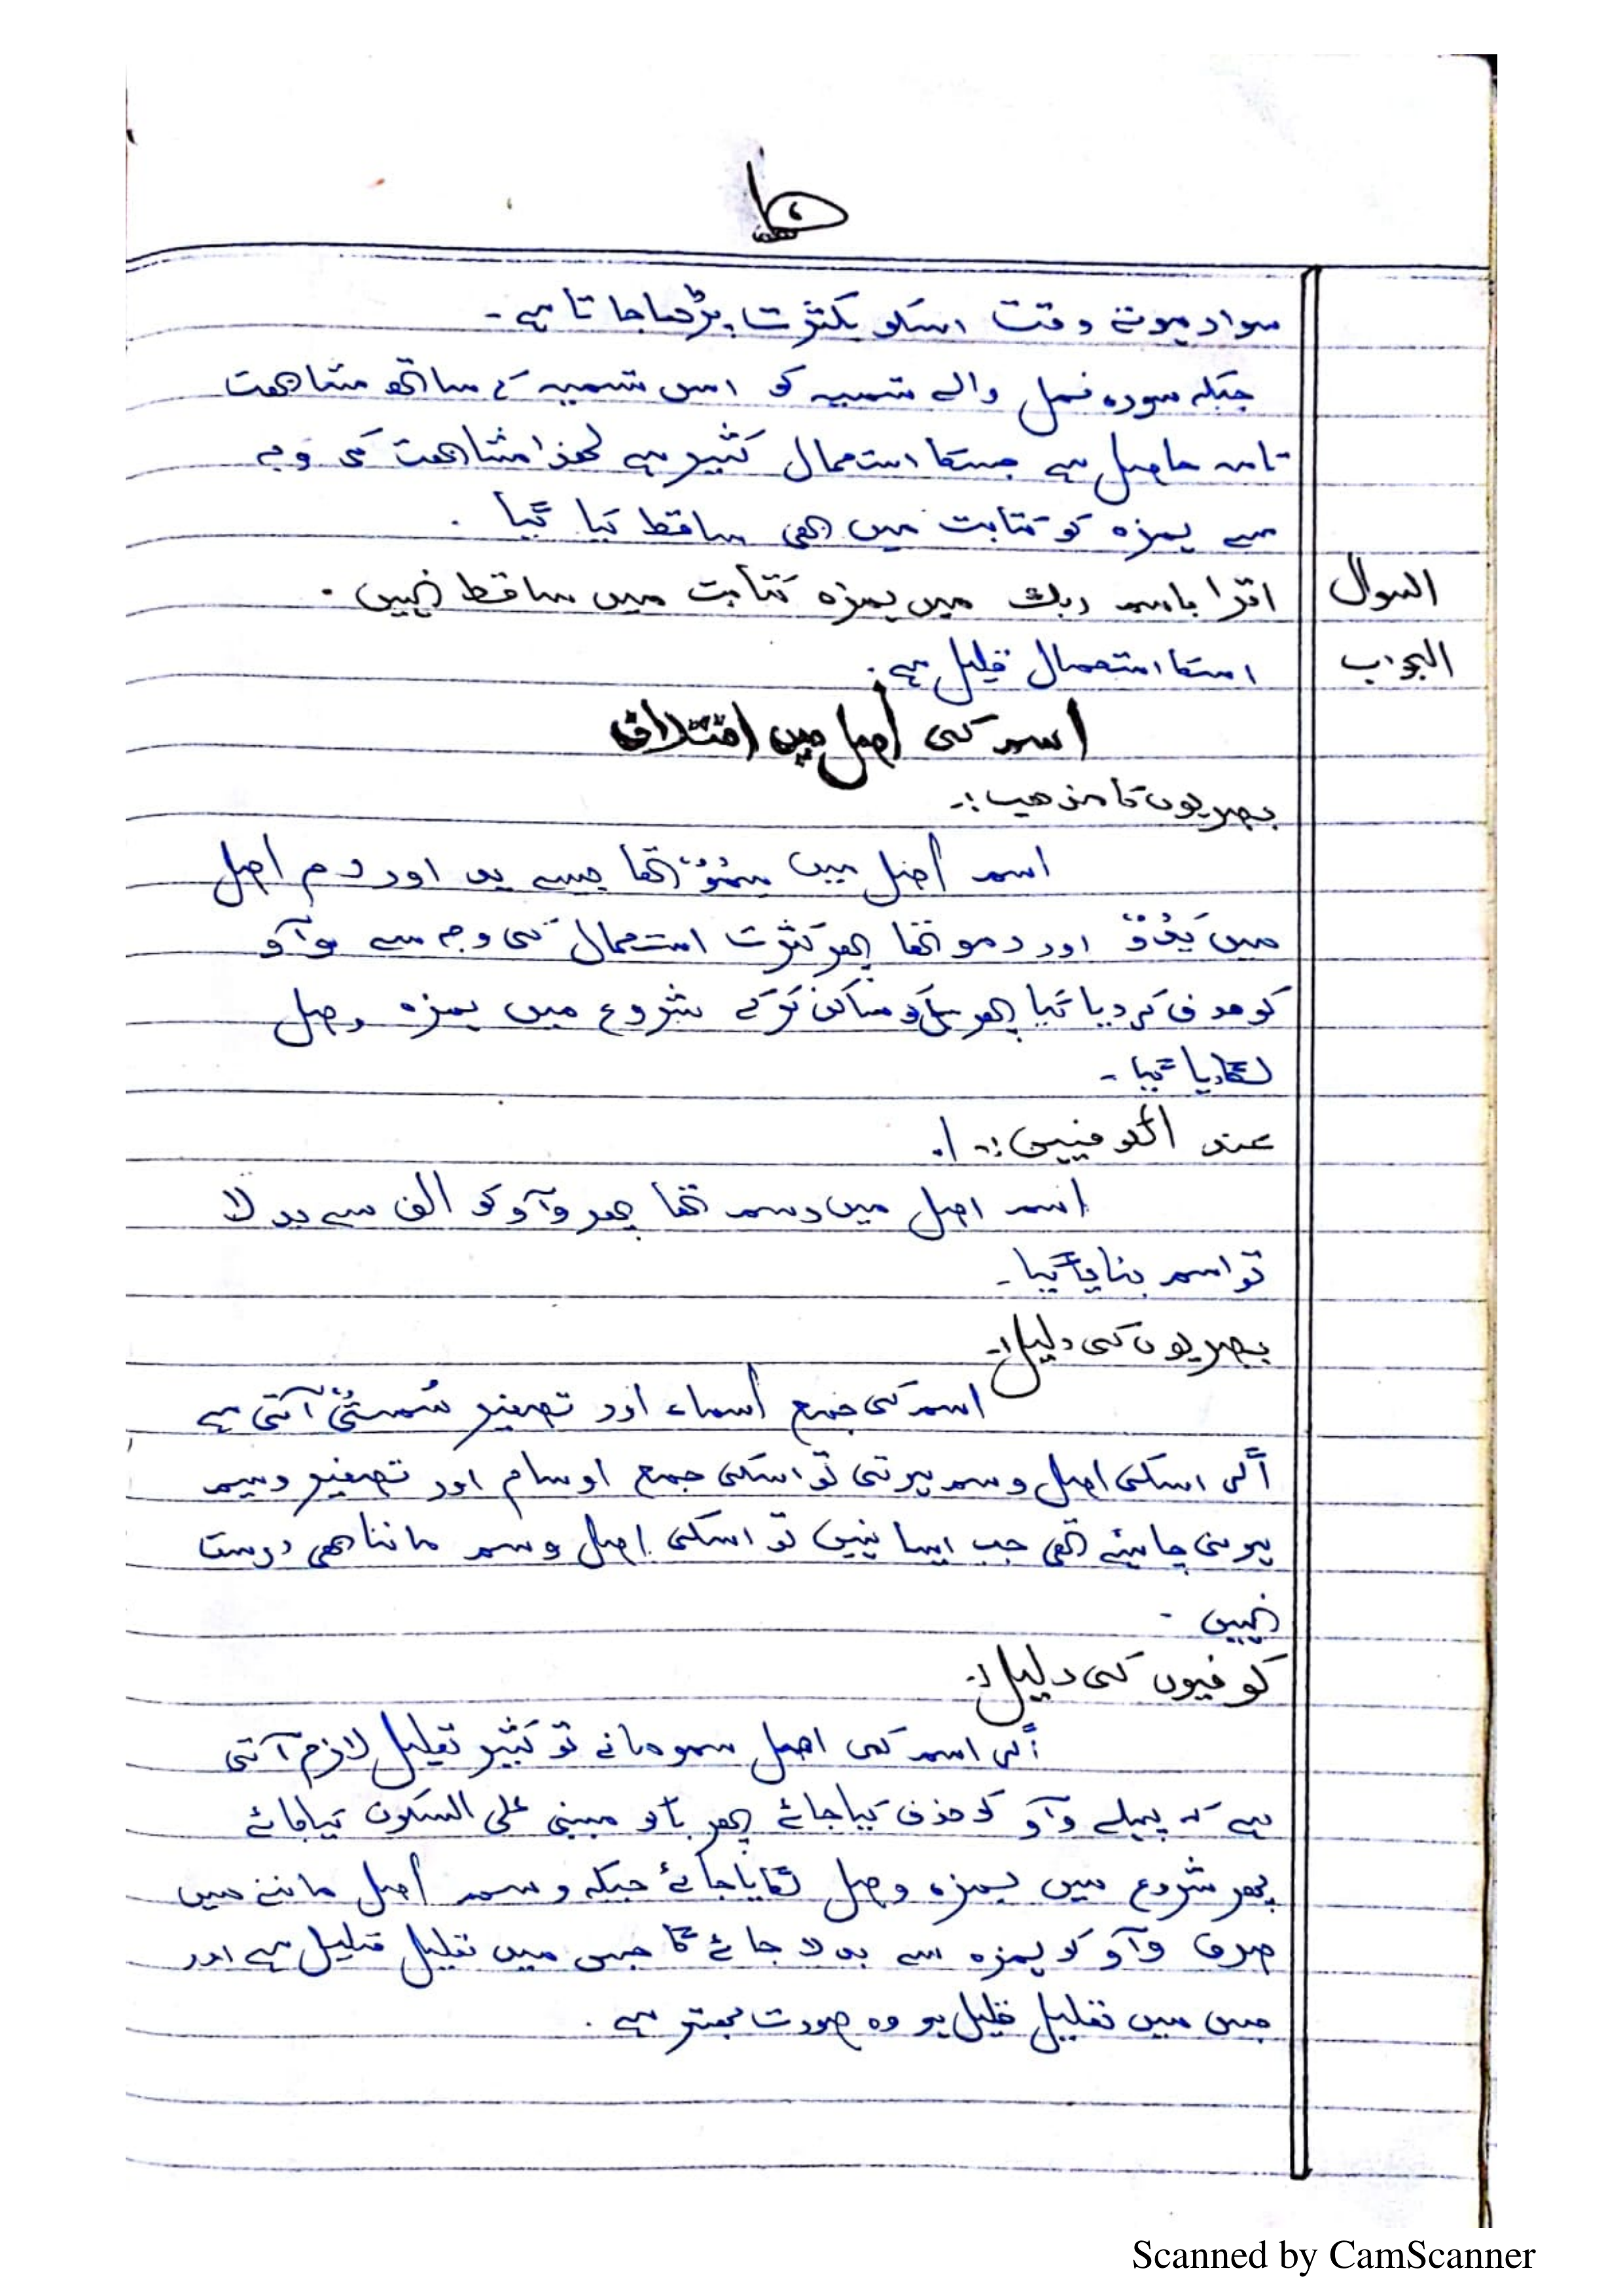 سوار ہوتے وقت اسکو بکثرت پڑھا جاتا ہے۔
جبکہ سورہ نمل والے تسمیہ کو اس تسمیہ کے ساتھ مشابھت
تامہ حاصل ہے جسکا استعمال کثیر ہے لھذا مشابھت کی وجہ
سے ہمزہ کو کتابت میں بھی ساقط کیا گیا۔
السوال اقرا باسم ربك میں ہمزہ کتابت میں ساقط نہیں۔
الجواب اسکا استعمال قلیل ہے۔
اسم کی اصل میں اختلاف
بصریوں کا مذھب:۔
اسم اصل میں سُمُوٌ تھا جیسے ید اور دم اصل
میں یَدُوٌ اور دمو تھا پھر کثرت استعمال کی وجہ سے وآؤ
کو حذف کر دیا گیا پھر س کو ساکن کر کے شروع میں ہمزہ وصل
لگا دیا گیا۔
عند الکوفیین:۔
اسم اصل میں وسم تھا پھر وآؤ کو الف سے بدلا
تو اسم بنایا گیا۔
بصریوں کی دلیل:۔
اسم کی جمع أسماء اور تصغیر سُمَیٌّ آتی ہے
اگر اسکی اصل وسم ہوتی تو اسکی جمع اوسام اور تصغیر وسیم
ہونی چاہیئے تھی جب ایسا نہیں تو اسکی اصل وسم ماننا ھی درست
نہیں۔
کوفیوں کی دلیل:۔
اگر اسم کی اصل سمو مانے تو کثیر تعلیل لازم آتی
ہے کہ پہلے وآؤ کو حذف کیا جائے پھر مبنی علی السکون کیا جائے
پھر شروع میں ہمزہ وصل لگایا جائے جبکہ وسم اصل ماننے میں
صرف وآؤ کو ہمزہ سے بدلا جائے گا جس میں تعلیل قلیل ہے اور
جس میں تعلیل قلیل ہو وہ صورت بھتر ہے۔
Scanned by CamScanner